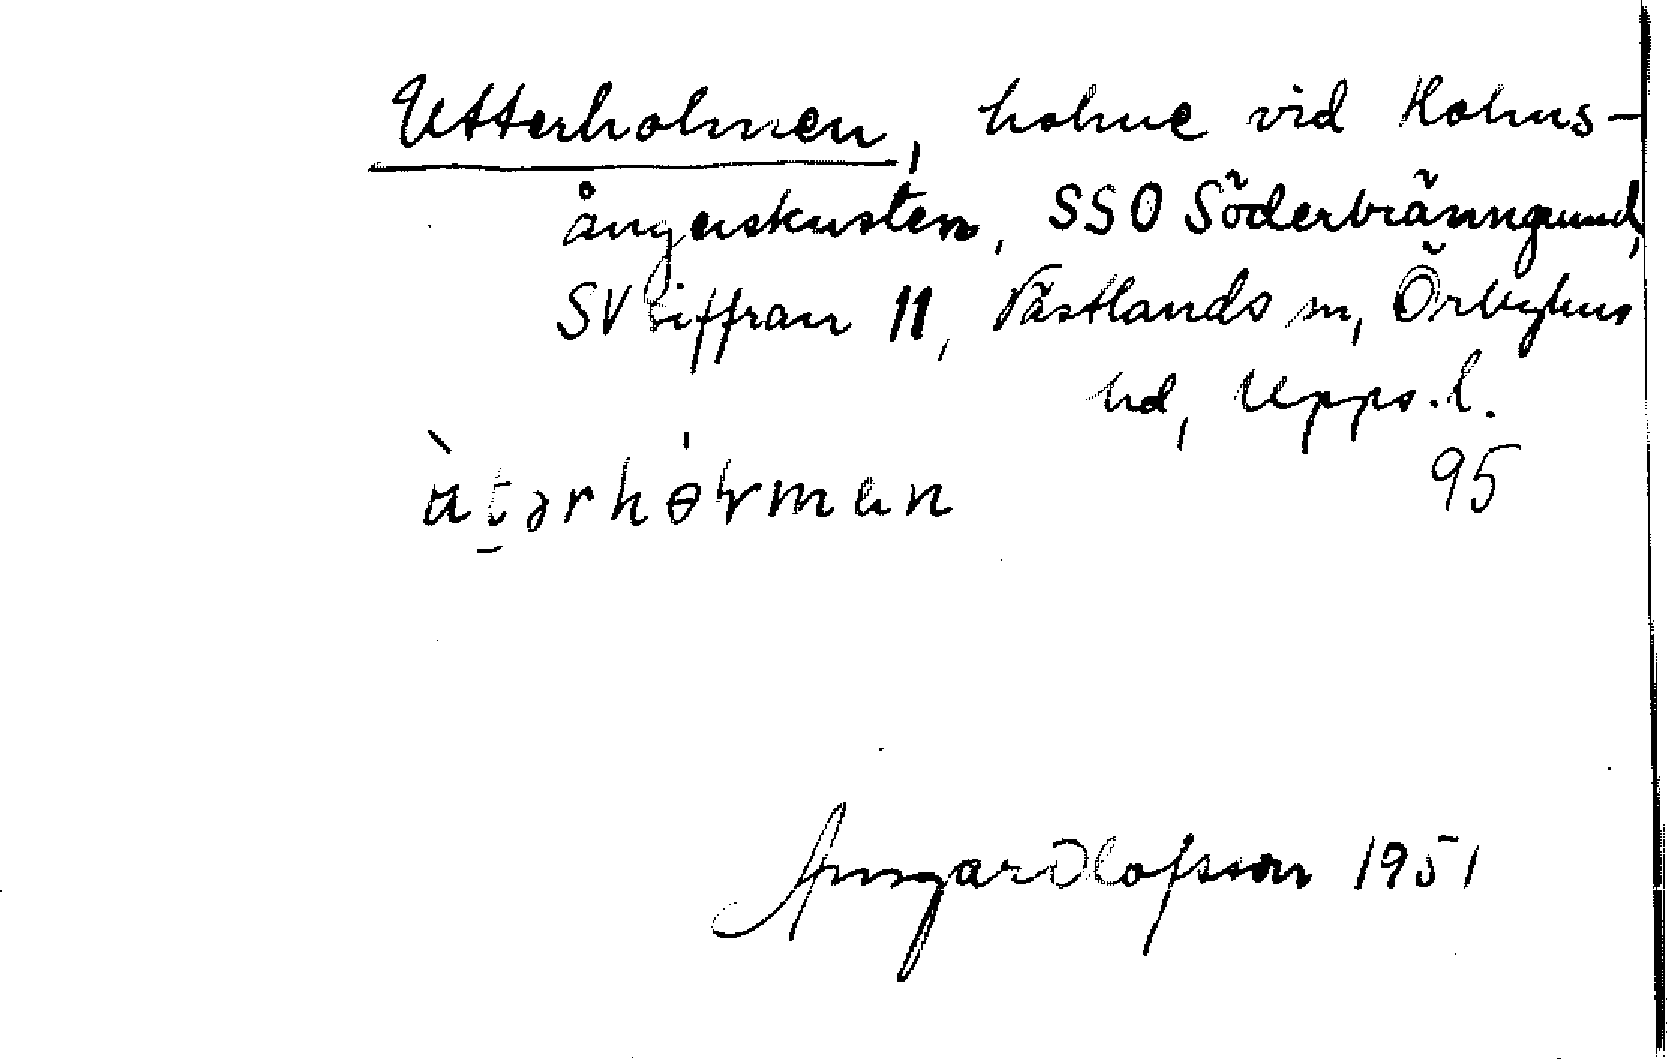 Utterholmen, holme vid Holms-
ångerskusten, SSO Söderbränngrund,
SV siffran 11, Västlands sn, Örbyhus
hd, Upps. l.
95
Ansgar Olofsson 1951